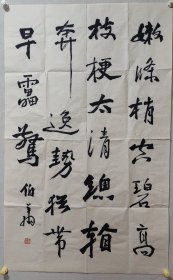 嫩條梢空碧高
枝梗太清總輸
奔逸勢猶帶
早雷驚 伯